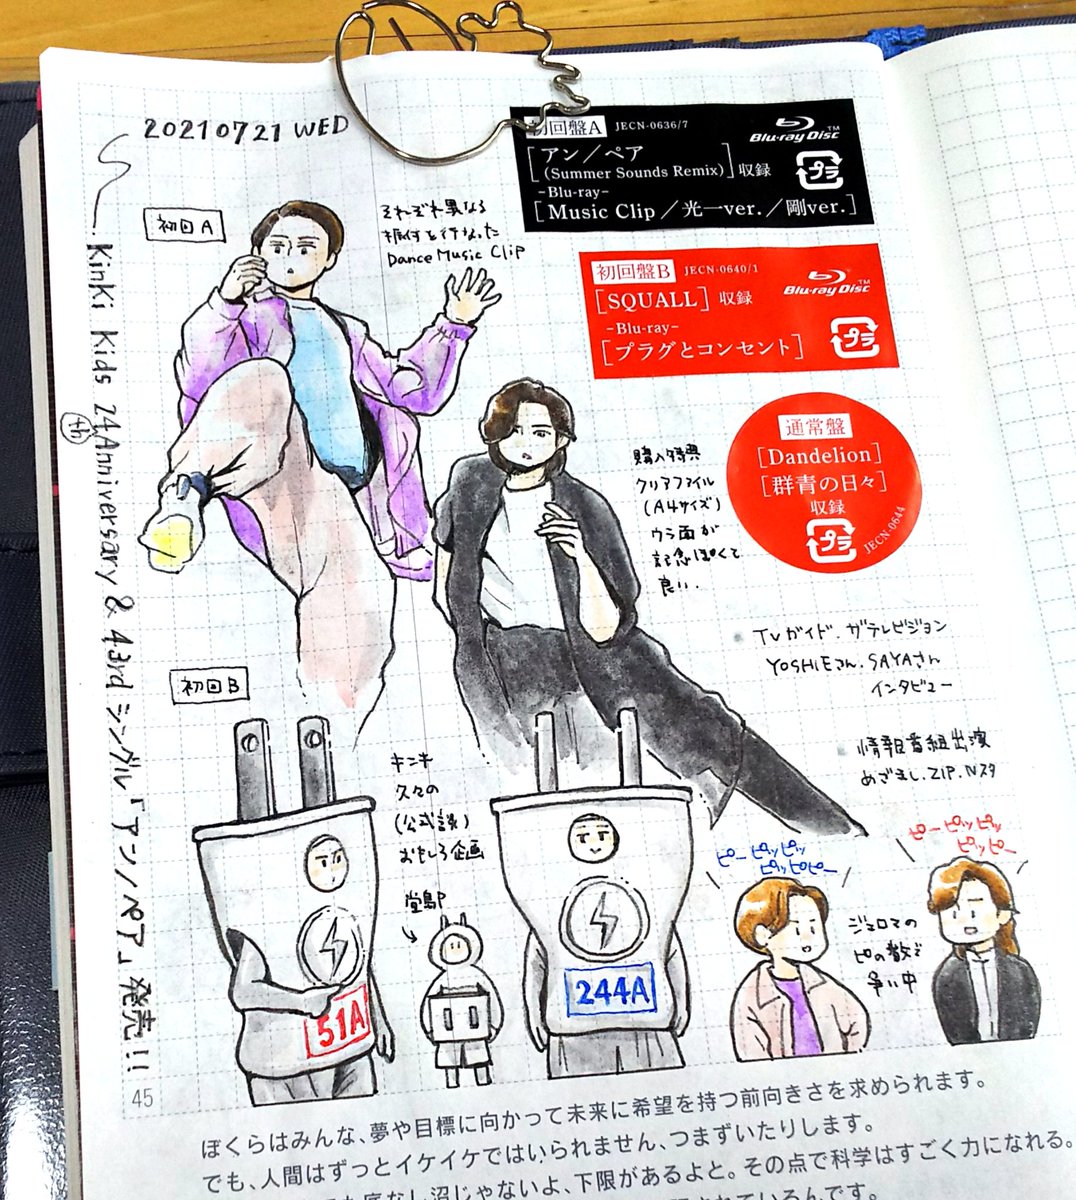 20210721 WED
KinKi Kids 24th Anniversary & 43rd シングル「アン/ペア」発売!!
初回A
それぞれ異なる
振付を行なった
Dance Music Clip
初回盤A JECN-0636/7
Blu-ray Disc™
[アン／ペア
(Summer Sounds Remix)] 収録
プラ
-Blu-ray-
[Music Clip／光一ver.／剛ver.]
初回盤B JECN-0640/1
Blu-ray Disc™
[SQUALL] 収録
-Blu-ray-
プラ
[プラグとコンセント]
通常盤
[Dandelion]
[群青の日々]
収録
プラ
JECN-0644
購入特典
クリアファイル
(A4サイズ)
ウラ面が
記念ぽくて
良い.
TVガイド.ザテレビジョン
YOSHIEさん.SAYAさん
インタビュー
情報番組出演
めざまし.ZIP.Nスタ
初回B
キンキ
久々の
(公式談)
おもしろ企画
堂島P
51A
244A
ピーピッピッ
ピッピピー
ピーピッピッ
ピッピー
ジェロマの
ピの数で
争い中
45
ぼくらはみんな、夢や目標に向かって未来に希望を持つ前向きさを求められます。
でも、人間はずっとイケイケではいられません、つまずいたりします。
底なし沼じゃないよ、下限があるよと。その点で科学はすごく力になれる。